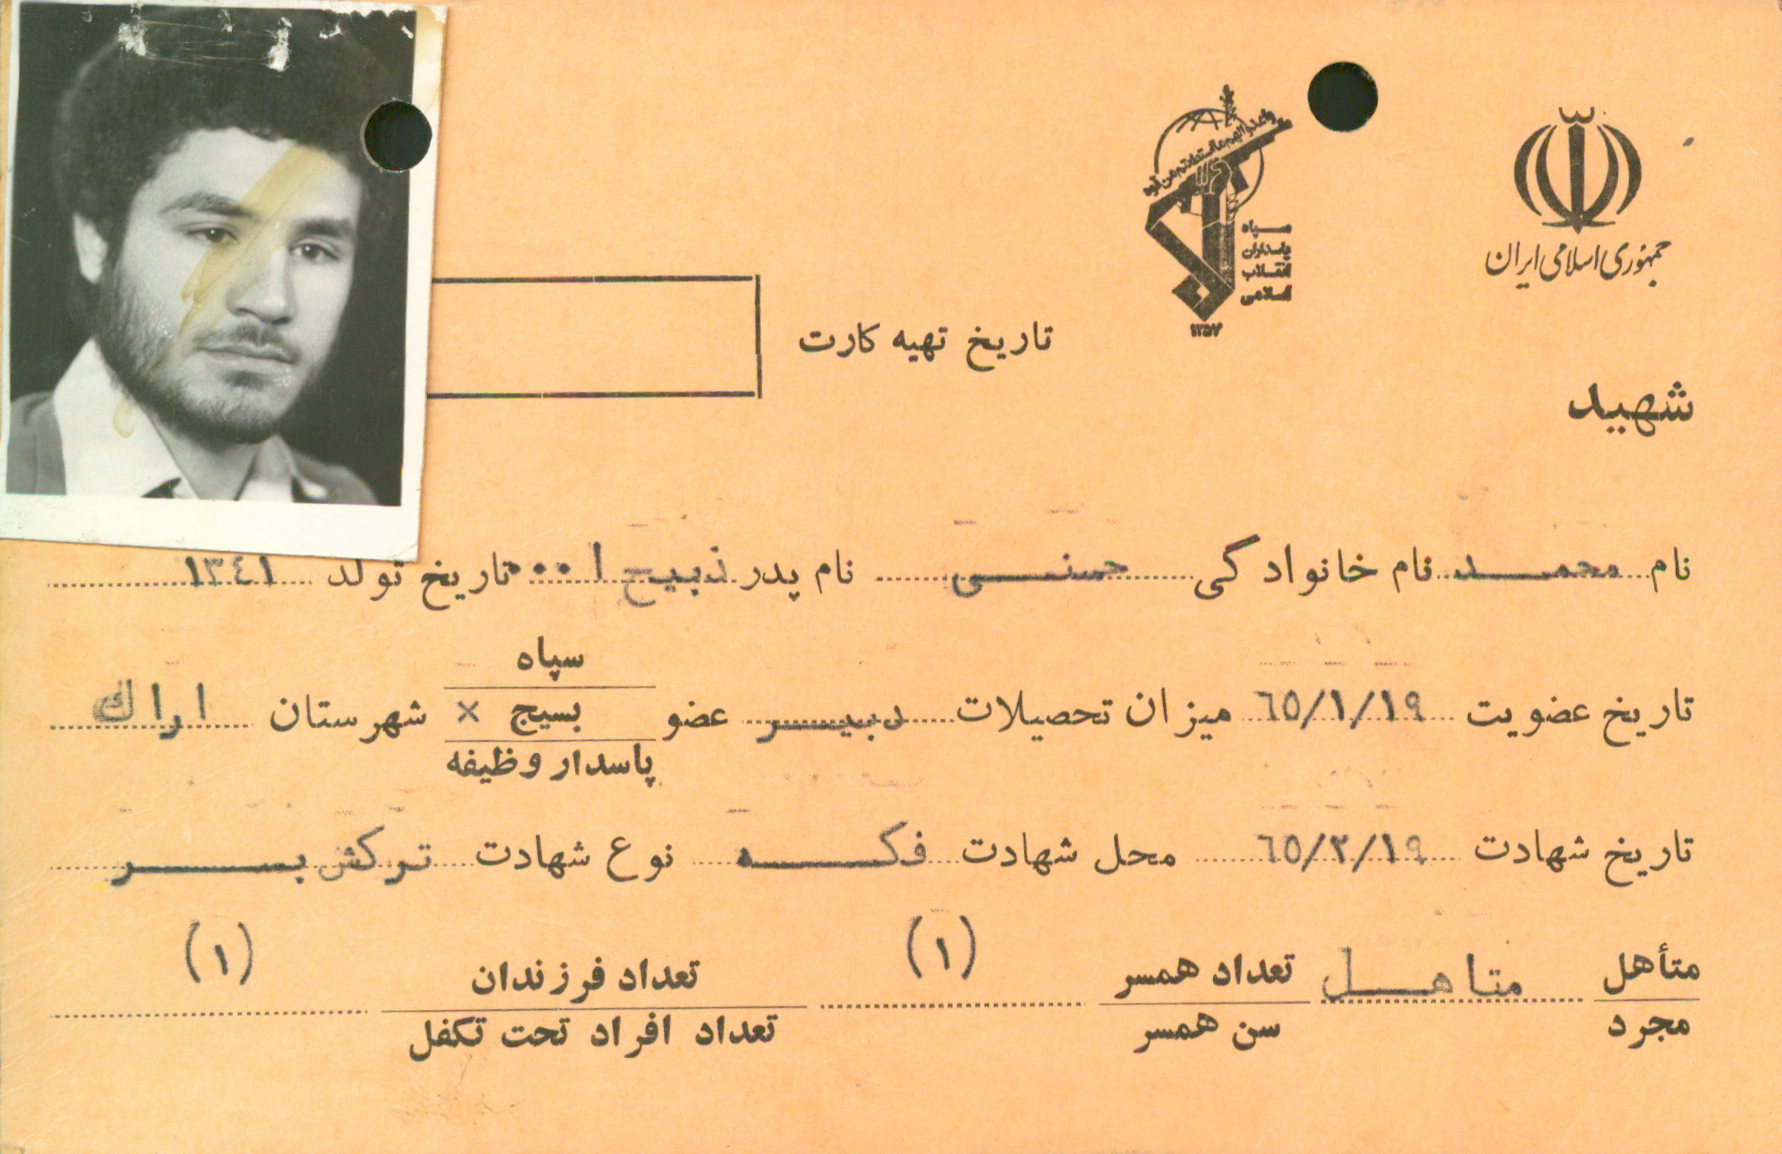 جمهوری اسلامی ایران
واعدوا لهم ما استطعتم من قوة
سپاه
پاسداران
انقلاب
اسلامی
۱۳۵۷
تاریخ تهیه کارت
شهید
نام محمد نام خانوادگی حسنی نام پدر ذبیح ا... تاریخ تولد ۱۳٤۱
سپاه
تاریخ عضویت ٦٥/۱/۱۹ میزان تحصیلات دبیر عضو بسیج × شهرستان اراك
پاسدار وظیفه
تاریخ شهادت ٦٥/۲/۱۹ محل شهادت فکه نوع شهادت ترکش بسر
متأهل متاهل تعداد همسر (۱) تعداد فرزندان (۱)
مجرد سن همسر تعداد افراد تحت تکفل